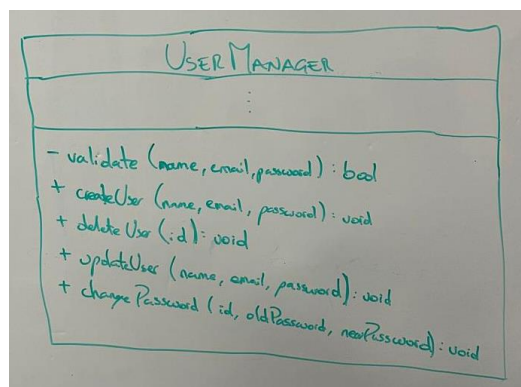 USERMANAGER
⋮
- validate (name, email, password) : bool
+ createUser (name, email, password) : void
+ deleteUser (id) : void
+ updateUser (name, email, password) : void
+ changePassword (id, oldPassword, newPassword) : void